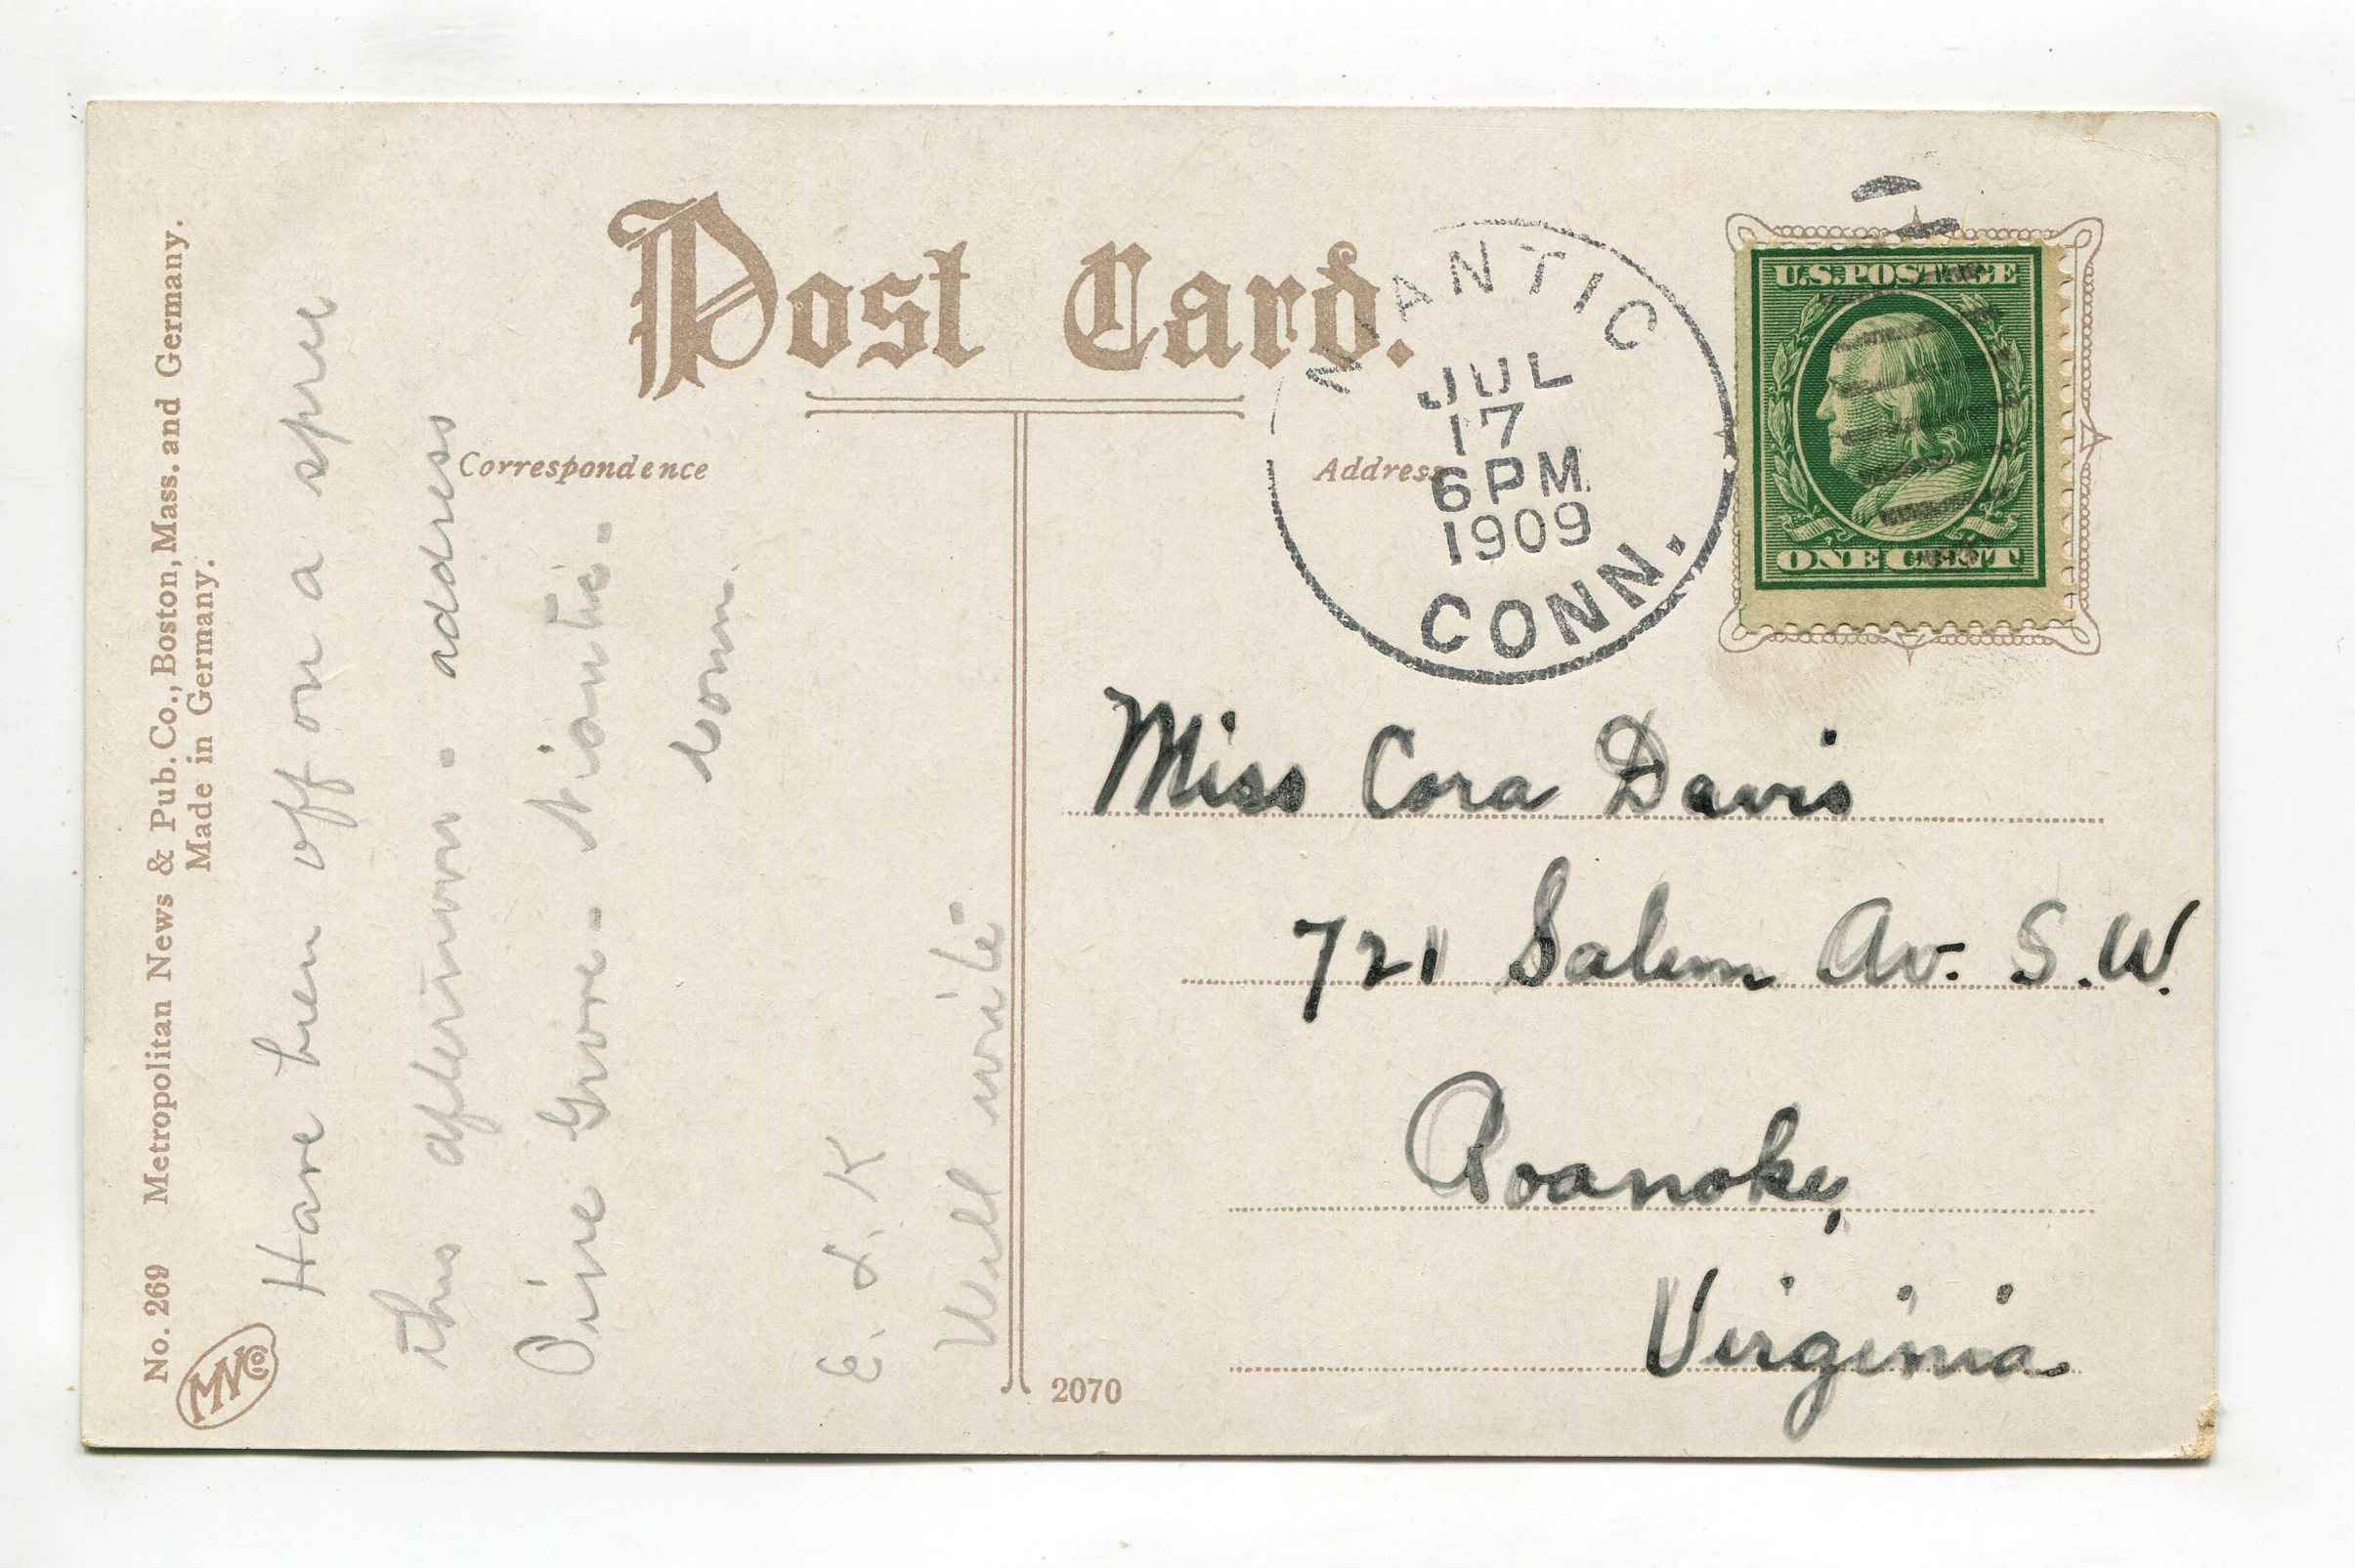 Post Card.
Correspondence
Address
NIANTIC
JUL
17
6 PM
1909
CONN.
U.S. POSTAGE
ONE CENT
Miss Cora Davis
721 Salem Av. S.W.
Roanoke,
Virginia
2070
Have been off on a spree
this afternoon. address
Pine Grove - Niantic -
Conn.
E. L. K
Will write -
No. 269 Metropolitan News & Pub. Co., Boston, Mass. and Germany.
Made in Germany.
MN Co